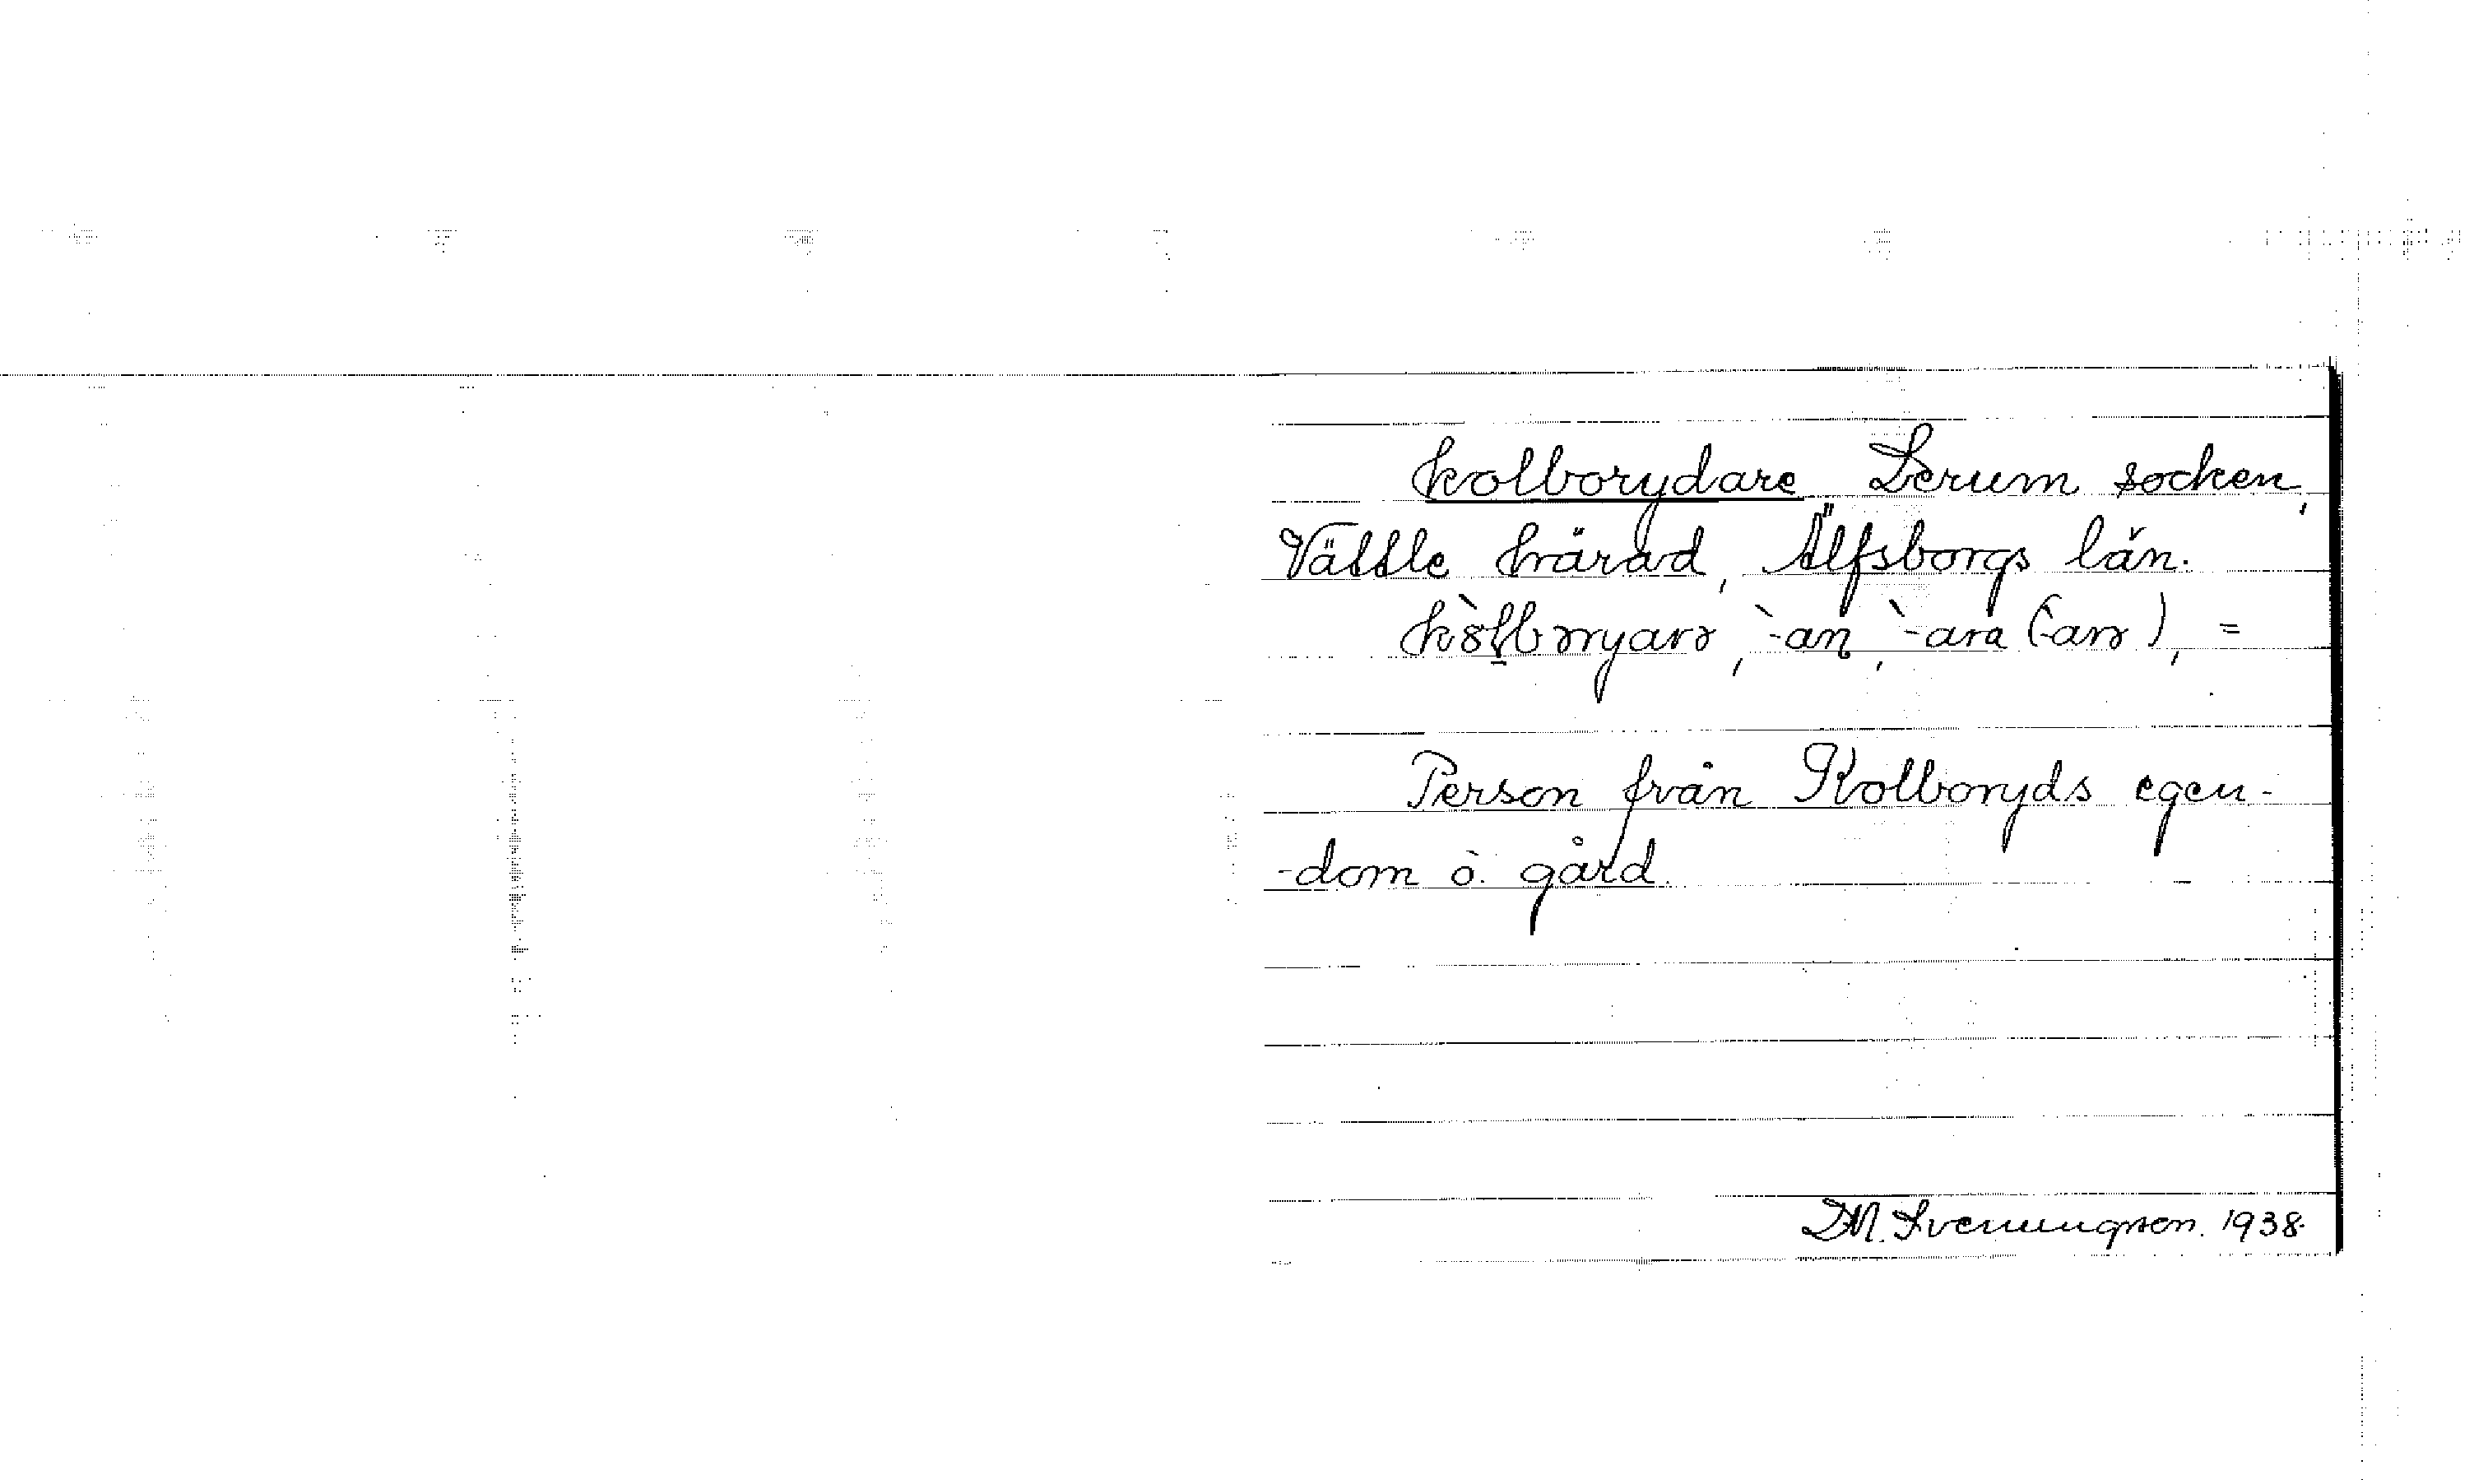 kolborydare Lerum socken,
Vättle härad, Älfsborgs län.
kòlbɤryarɤ, `-an, `-ara (`-arɤ), =
Person från Kolboryds egen-
-dom o. gård.
D.M. Svenningson. 1938.